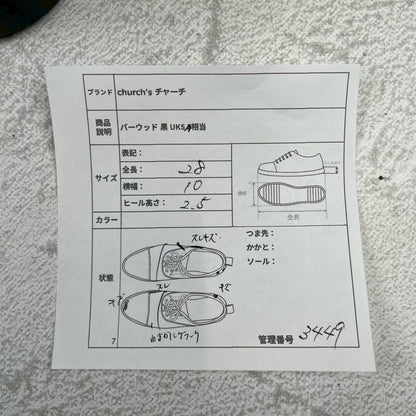 ブランド church's チャーチ
商品説明 バーウッド 黒 UK5.5相当
サイズ
表記：
全長： 28
横幅： 10
ヒール高さ： 2.5
横幅
全長
カラー
状態
スレキズ
つま先：
かかと：
ソール：
キズ スレ キズ
クラック
7
管理番号 3449